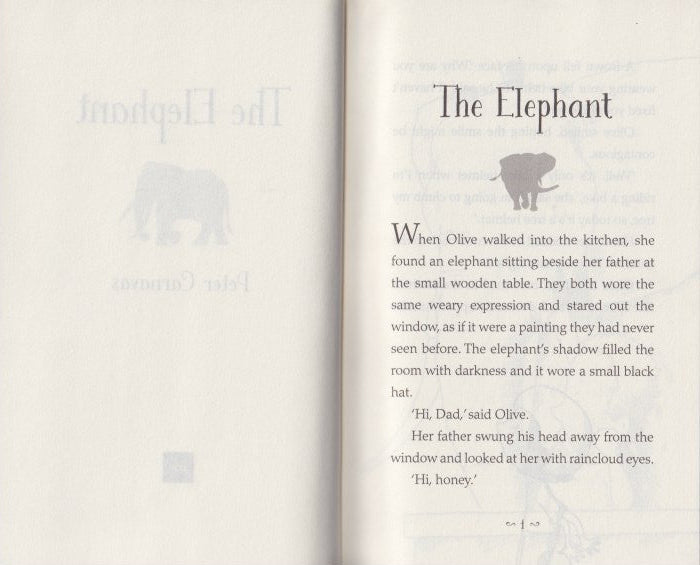 The Elephant
Peter Carnavas
The Elephant
When Olive walked into the kitchen, she
found an elephant sitting beside her father at
the small wooden table. They both wore the
same weary expression and stared out the
window, as if it were a painting they had never
seen before. The elephant's shadow filled the
room with darkness and it wore a small black
hat.
‘Hi, Dad,’ said Olive.
Her father swung his head away from the
window and looked at her with raincloud eyes.
‘Hi, honey.’
1